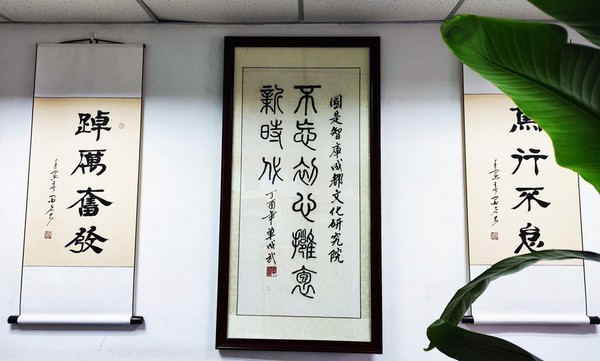 踔厲奮發
壬寅年
國是智庫成都文化研究院
不忘初心擁
新時代
丁酉年單成武
篤行不怠
壬寅年